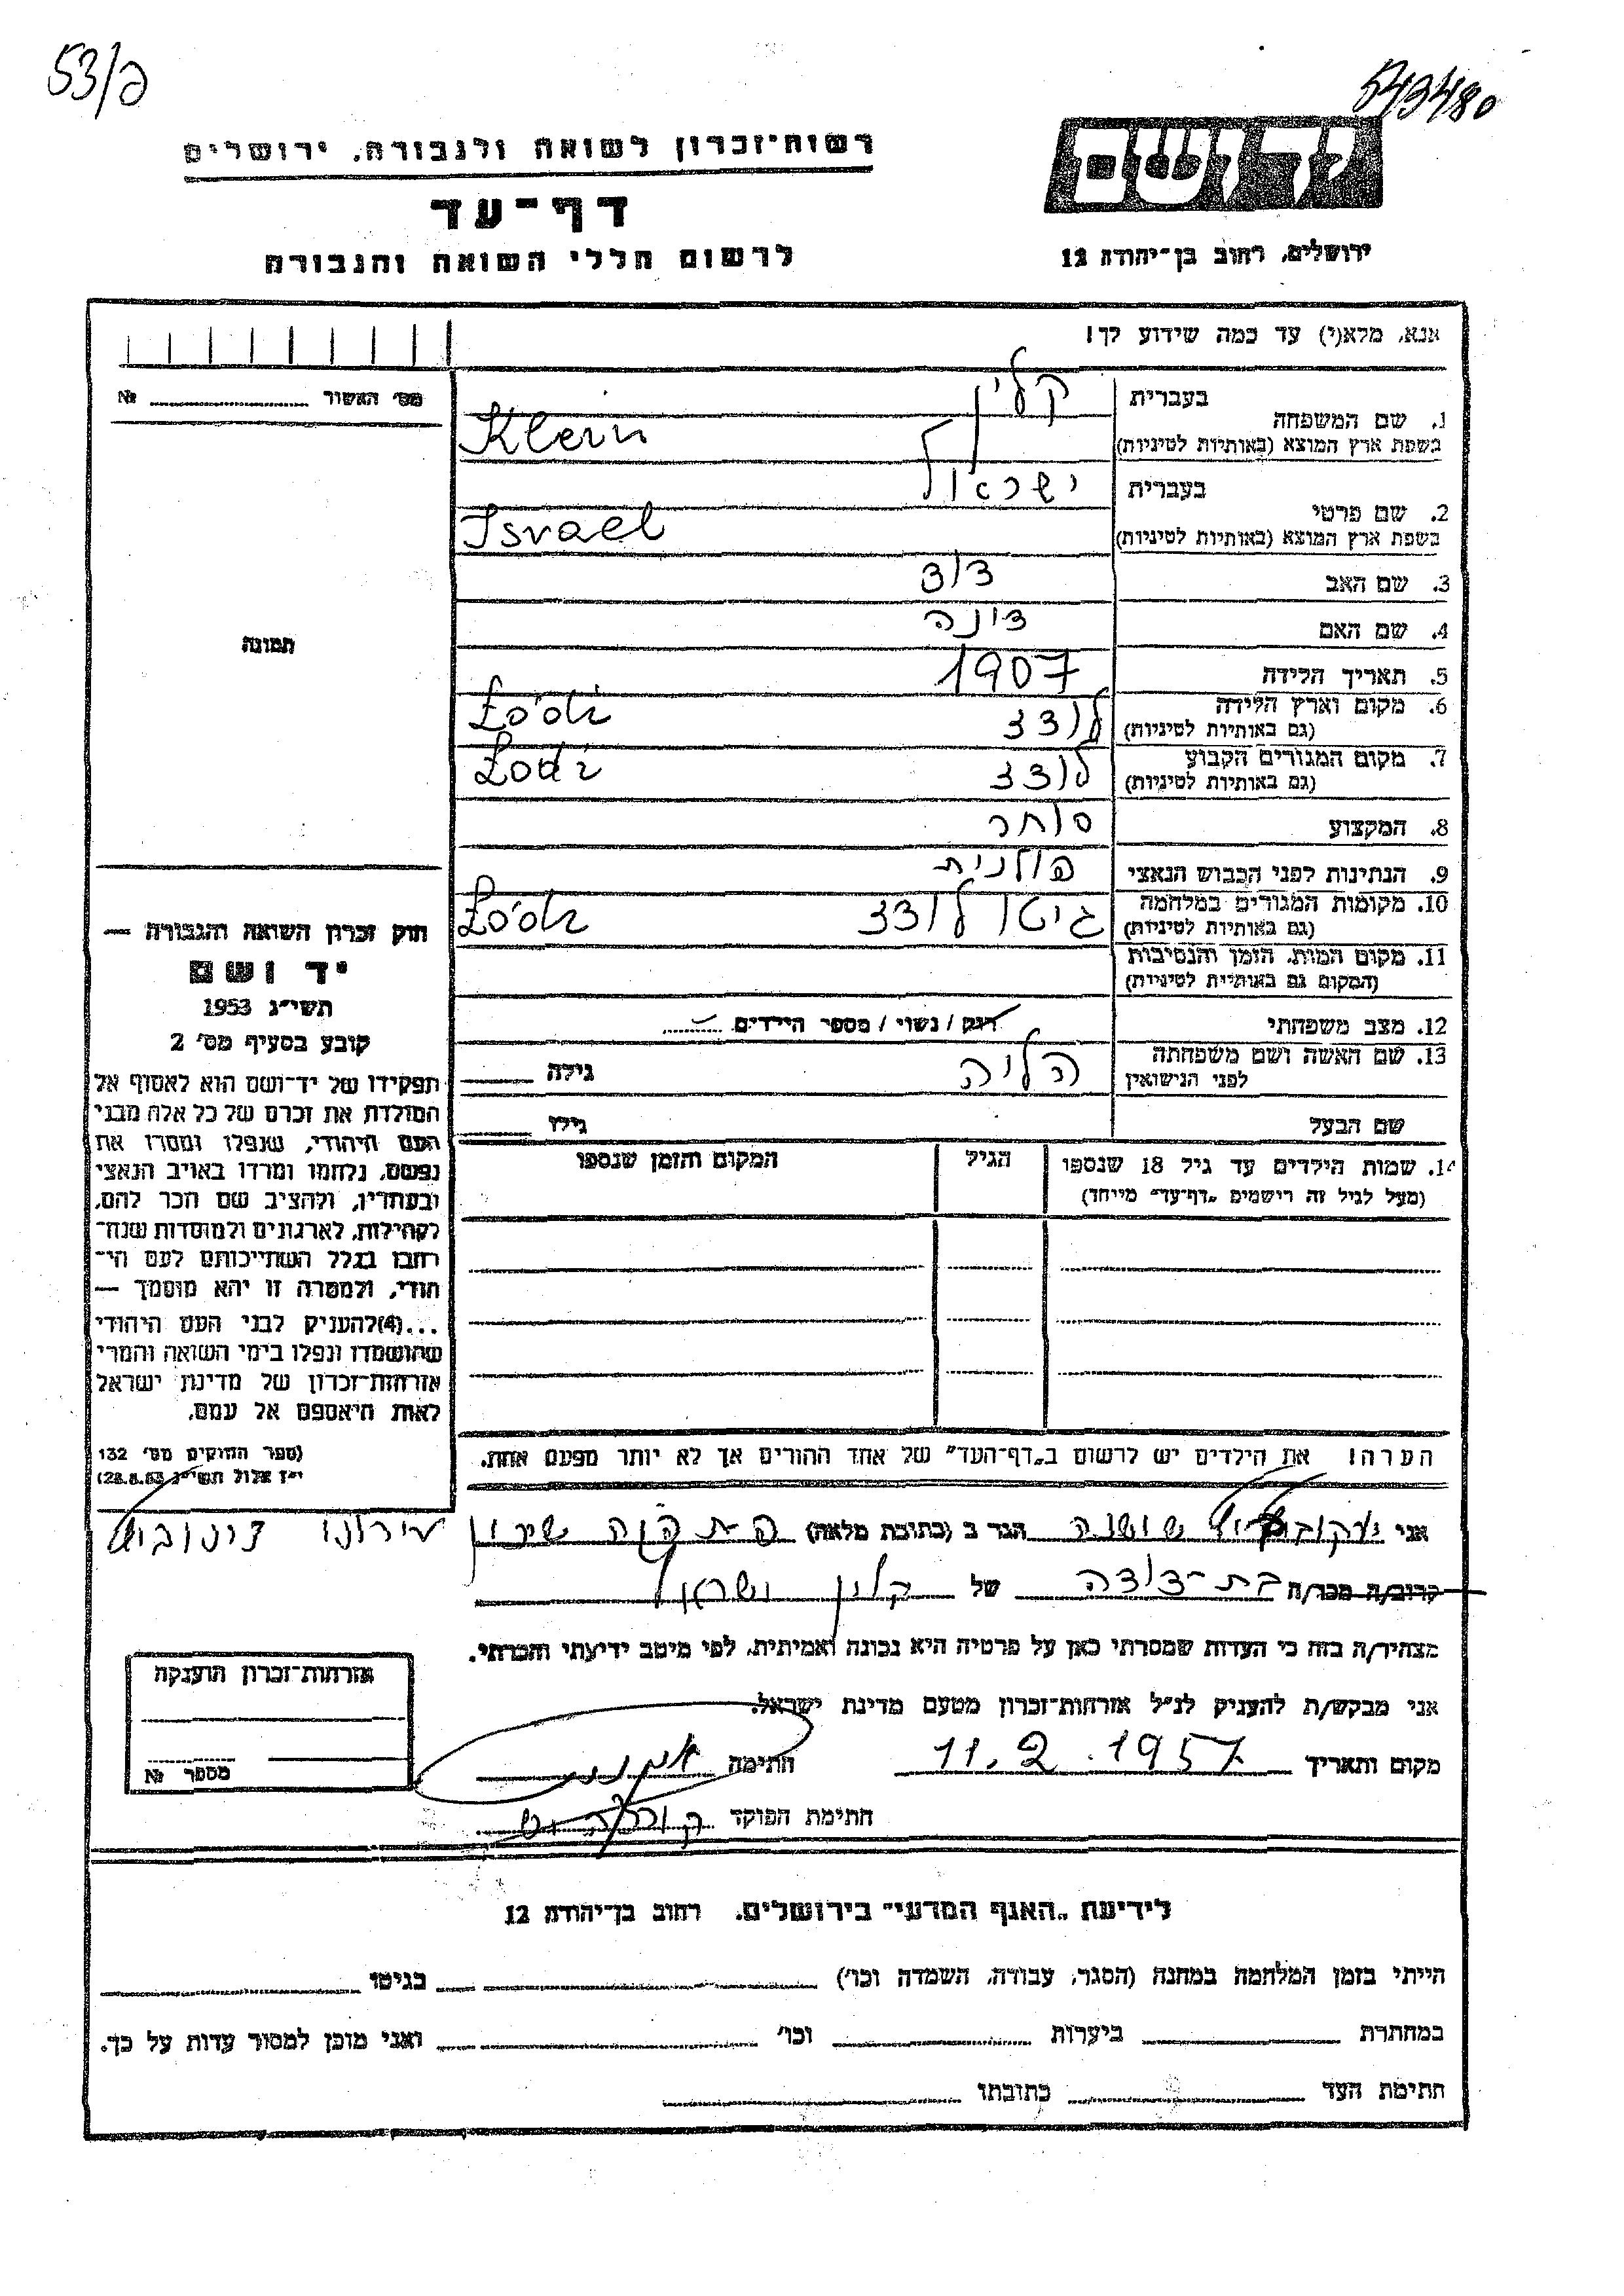 53/פ
543480
יד ושם
רשות־זכרון לשואה ולגבורה, ירושלים
דף־עד
לרשום חללי השואה והגבורה
ירושלים, רחוב בן־יהודה 12
אנא, מלא(י) עד כמה שידוע לך!
מס׳ האשור № 
1. שם המשפחה בעברית קליין
בשפת ארץ המוצא (באותיות לטיניות) Klein
2. שם פרטי בעברית ישראל
בשפת ארץ המוצא (באותיות לטיניות) Israel
3. שם האב דוד
4. שם האם דינה
5. תאריך הלידה 1907
6. מקום וארץ הלידה (גם באותיות לטיניות) לודז Łódź
7. מקום המגורים הקבוע (גם באותיות לטיניות) לודז Łodź
8. המקצוע סוחר
9. הנתינות לפני הכבוש הנאצי פולנית
10. מקומות המגורים במלחמה (גם באותיות לטיניות) גיטו לודז Łódź
11. מקום המות, הזמן והנסיבות
(המקום גם באותיות לטיניות)
12. מצב משפחתי רווק / נשוי / מספר הילדים
13. שם האשה ושם משפחתה לפני הנישואין הליה גילה
שם הבעל גילו
14. שמות הילדים עד גיל 18 שנספו הגיל המקום והזמן שנספו
(מעל לגיל זה רישמים „דף־עד״ מיוחד)
תמונה
חוק זכרון השואה והגבורה —
יד ושם
תשי״ג 1953
קובע בסעיף מס׳ 2
תפקידו של יד־ושם הוא לאסוף אל
המולדת את זכרם של כל אלה מבני
העם היהודי, שנפלו ומסרו את
נפשם, נלחמו ומרדו באויב הנאצי
ובעוזריו, ולהציב שם וזכר להם,
לקהילות, לארגונים ולמוסדות שנח־
רבו בגלל השתייכותם לעם הי־
הודי, ולמטרה זו יהא מוסמך —
...(4)להעניק לבני העם היהודי
שהושמדו ונפלו בימי השואה והמרי
אזרחות־זכרון של מדינת ישראל
לאות היאספם אל עמם.
(ספר החוקים מס׳ 132
י״ז אלול תשי״ג 28.8.53)
הערה! את הילדים יש לרשום ב„דף־העד״ של אחד ההורים אך לא יותר מפעם אחת.
אני שושנה הגר ב (כתובת מלאה) פתח תקוה שיכון
קרוב/ה מכר/ה בת־דודה של קלין ישראל
מצהיר/ה בזה כי העדות שמסרתי כאן על פרטיה היא נכונה ואמיתית, לפי מיטב ידיעתי והכרתי.
אני מבקש/ת להעניק לנ״ל אזרחות־זכרון מטעם מדינת ישראל.
מקום ותאריך 11.2.1957 חתימה
חתימת הפוקד
אזרחות־זכרון הוענקה
מספר №
לידיעת „האגף המדעי״ בירושלים, רחוב בן־יהודה 12
הייתי בזמן המלחמה במחנה (הסגר, עבודה, השמדה וכו׳) בגיטו
במחתרת ביערות וכו׳ ואני מוכן למסור עדות על כך.
חתימת העד כתובתו